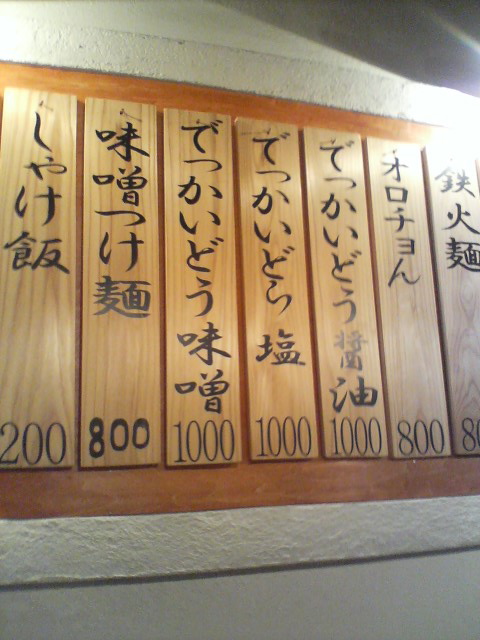 鉄火麺
オロチョん
800
でっかいどう醤油
1000
でっかいどう 塩
1000
でっかいどう味噌
1000
味噌つけ麺
800
しゃけ飯
200